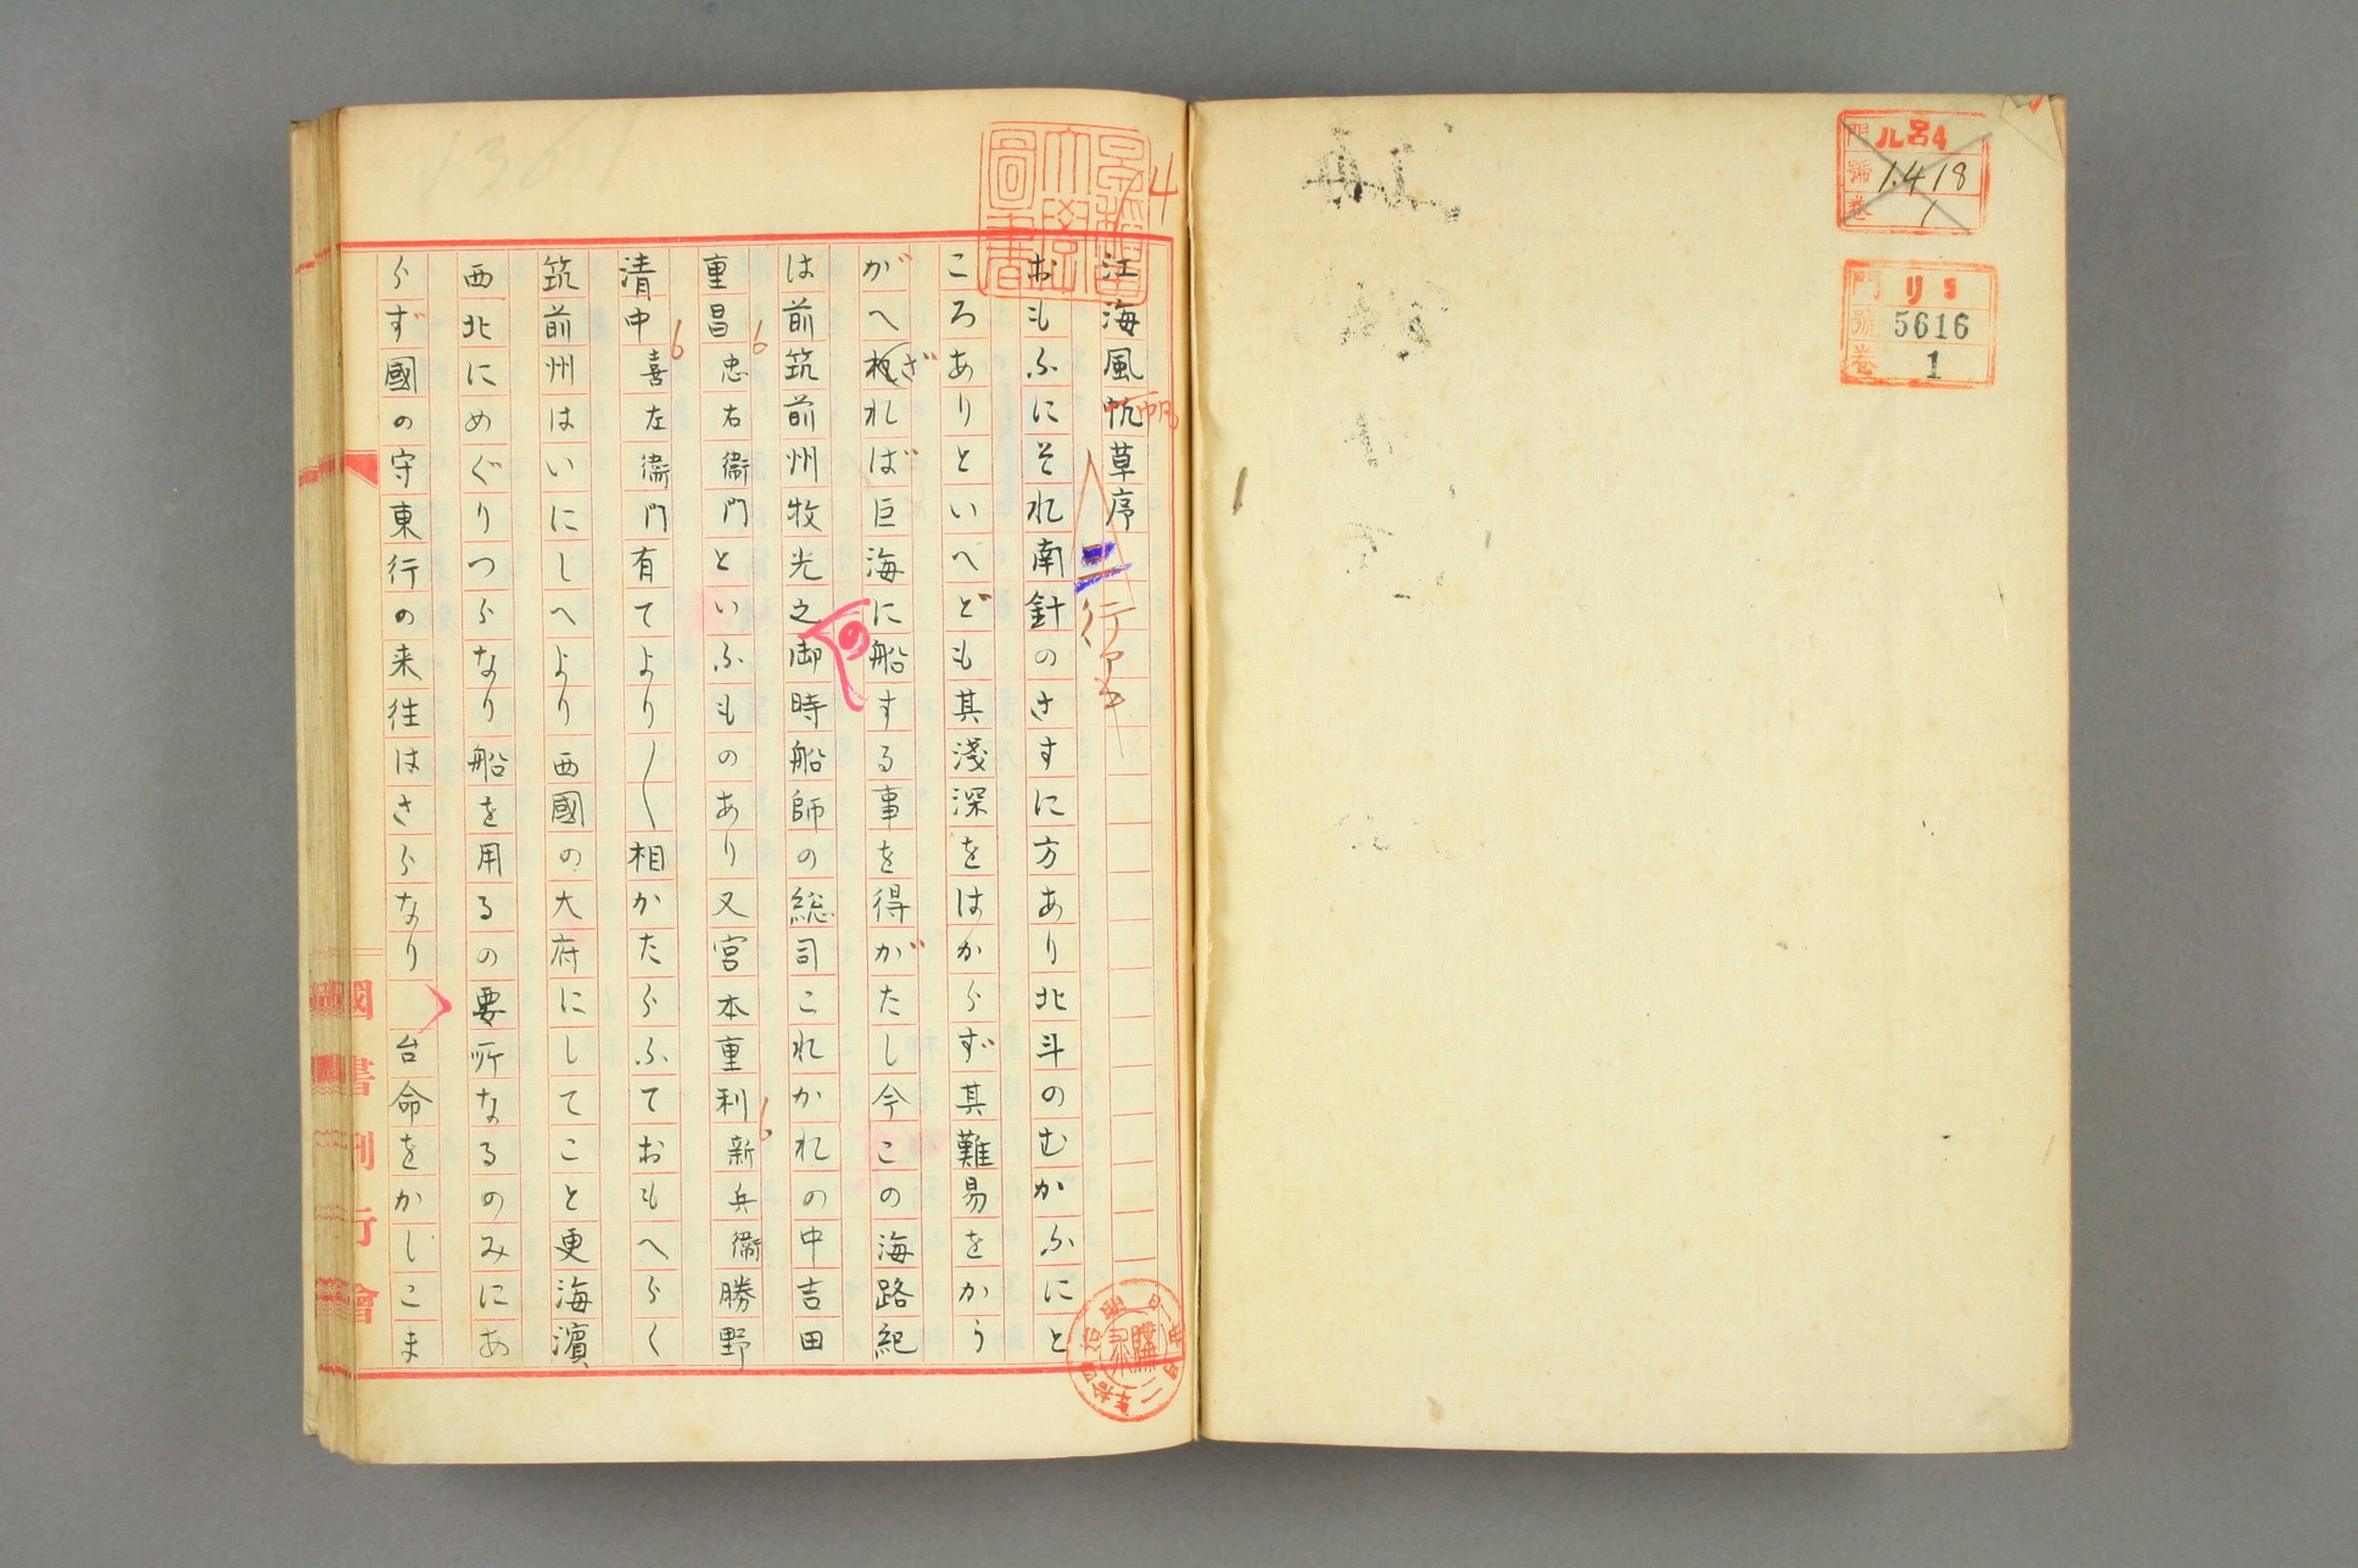 ル呂4
門
號 1.418
卷 1
門 リ5
號 5616
卷 1
14
江海風帆草序
帆
二行アキ
おもふにそれ南針のさすに方あり北斗のむかふにと
ころありといへども其淺深をはからず其難易をかう
がへざれば巨海に船する事を得がたし今この海路紀
は前筑前州牧光之御時船師の総司これかれの中吉田
の
重昌忠右衞門といふものあり又宮本重利新兵衞勝野
清中喜左衞門有てより〳〵相かたらふておもへらく
筑前州はいにしへより西國の大府にしてこと更海濵
西北にめぐりつらなり船を用るの要所なるのみにあ
らず國の守東行の来往はさらなり　台命をかしこま
國書刊行會